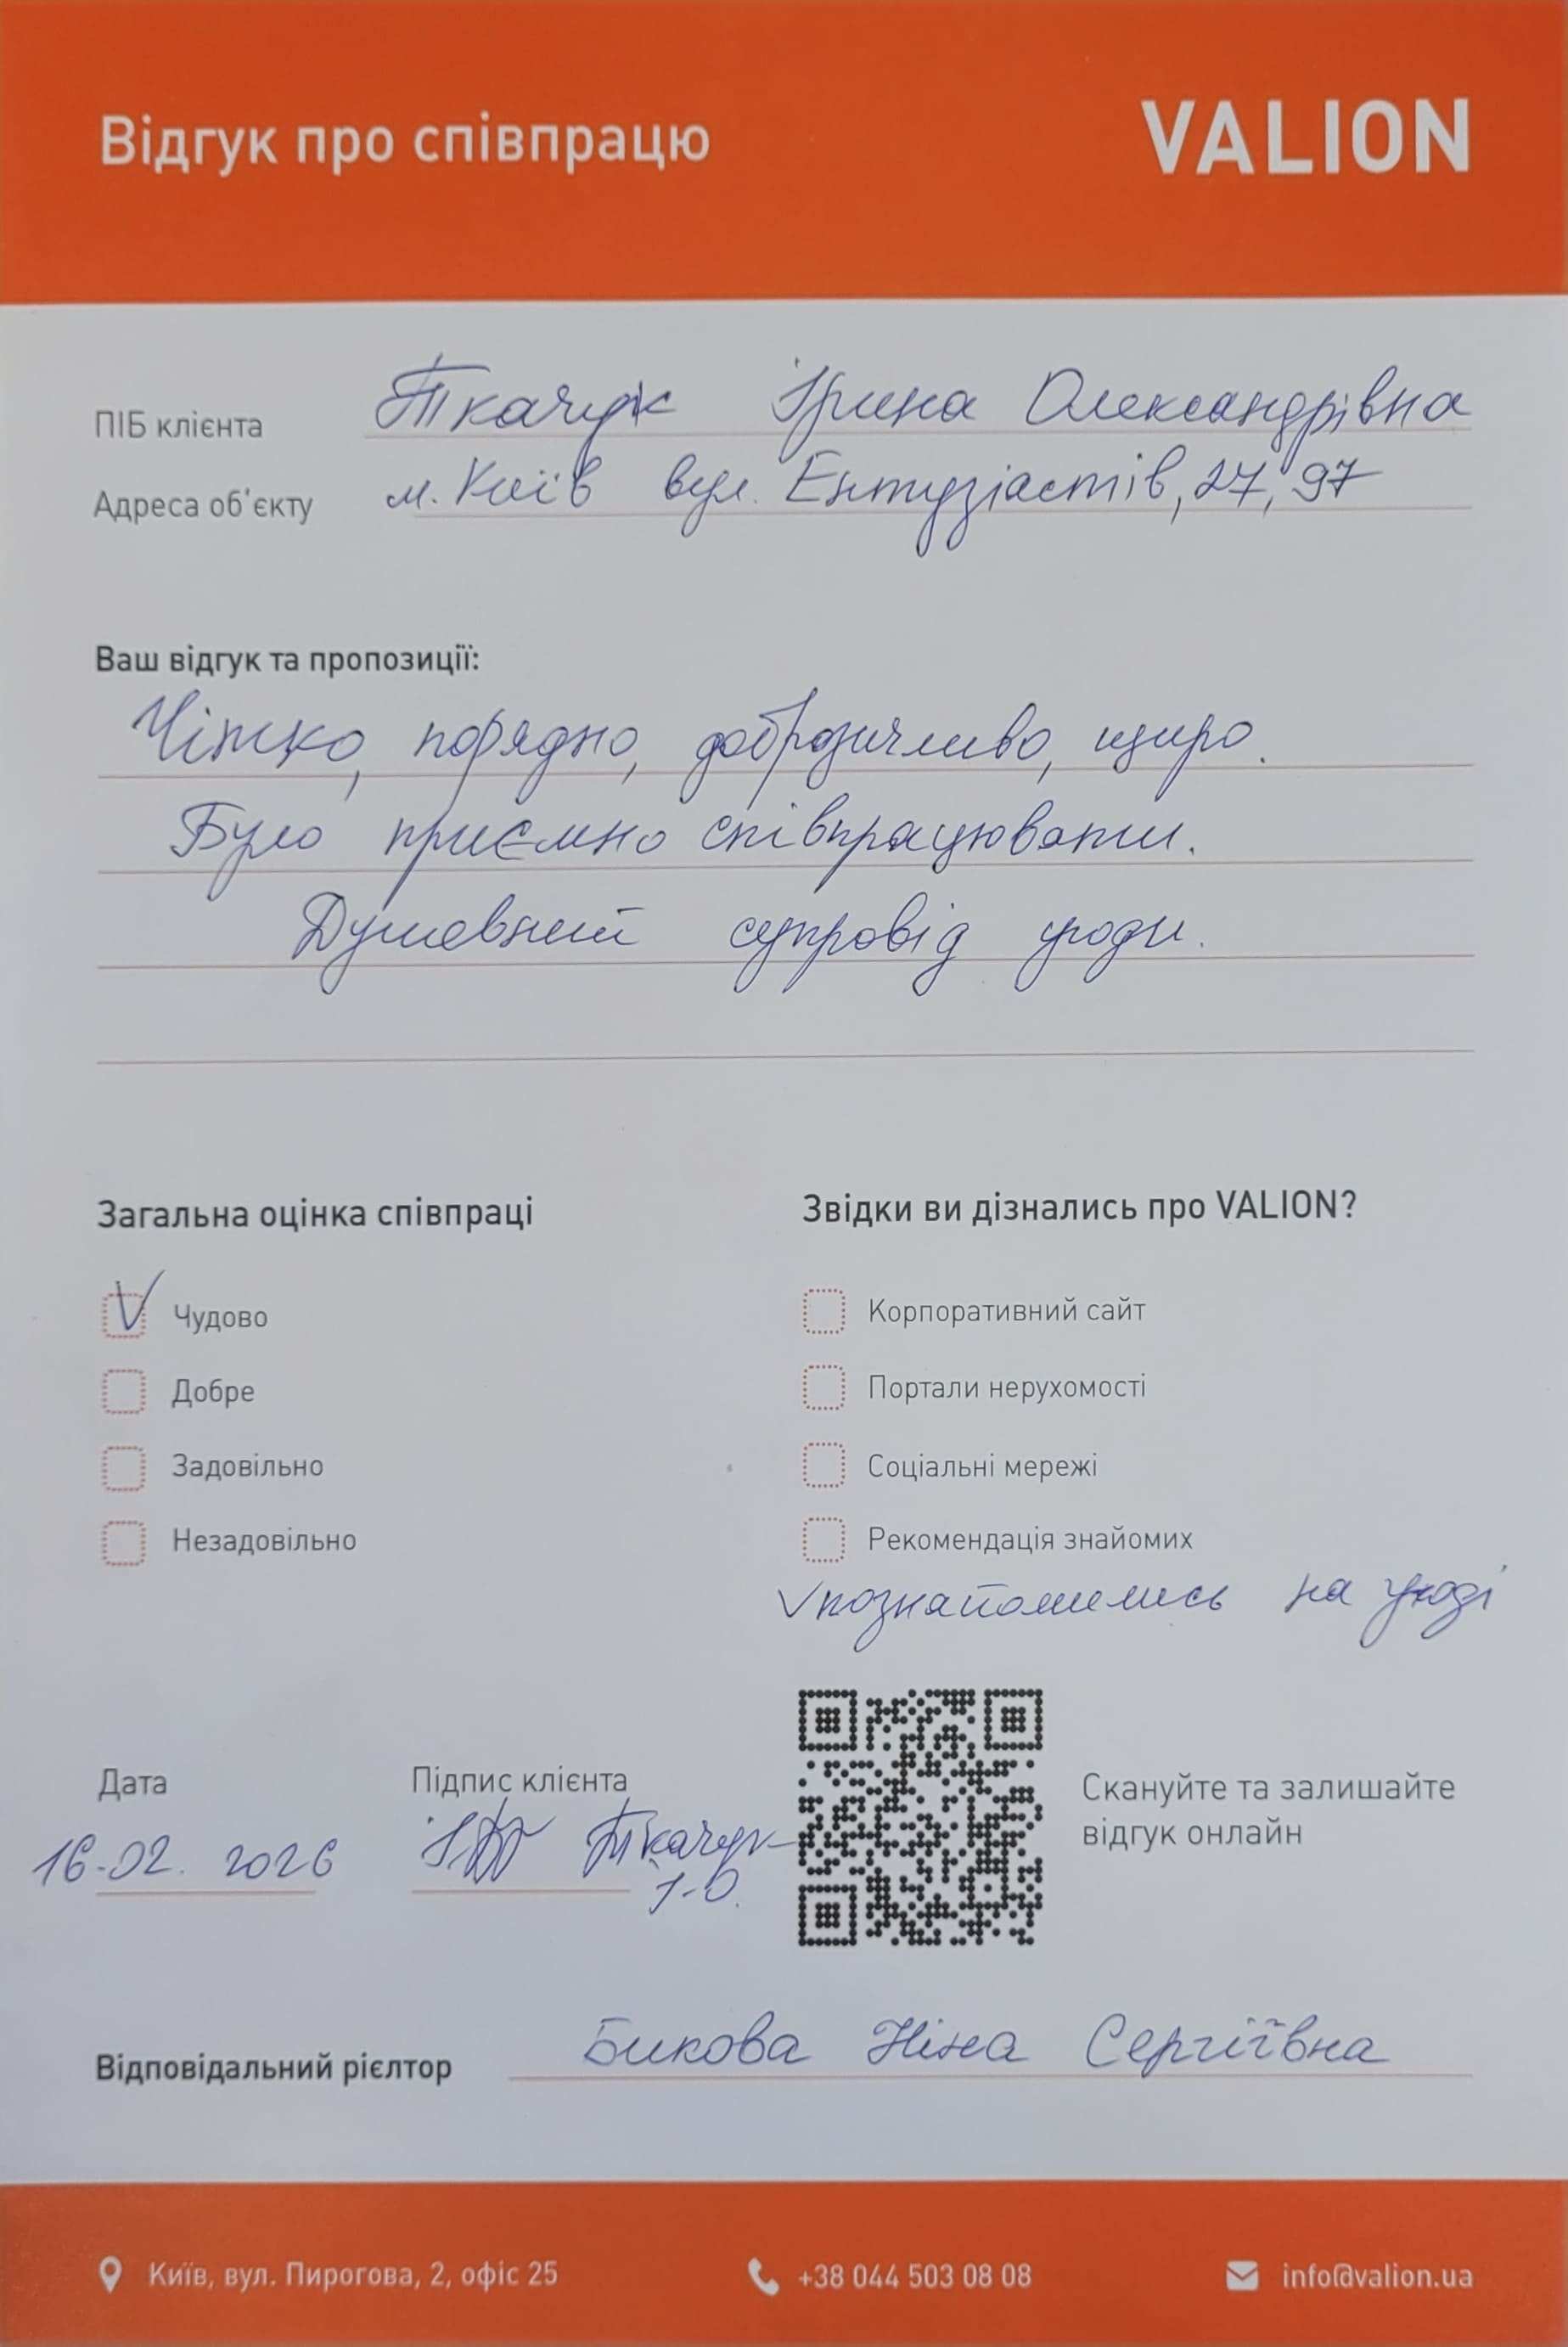 Відгук про співпрацю VALION
ПІБ клієнта Ткачук Ірина Олександрівна
Адреса об'єкту м. Київ вул. Ентузіастів, 27, 97
Ваш відгук та пропозиції:
Чітко, порядно, доброзичливо, щиро.
Було приємно співпрацювати.
Душевний супровід угоди.
Загальна оцінка співпраці
V Чудово
Добре
Задовільно
Незадовільно
Звідки ви дізнались про VALION?
Корпоративний сайт
Портали нерухомості
Соціальні мережі
Рекомендація знайомих
V познайомились на угоді
Дата
16.02. 2026
Підпис клієнта
Ткачук
І.О.
Скануйте та залишайте
відгук онлайн
Відповідальний рієлтор Бикова Ніна Сергіївна
Київ, вул. Пирогова, 2, офіс 25 +38 044 503 08 08 info@valion.ua